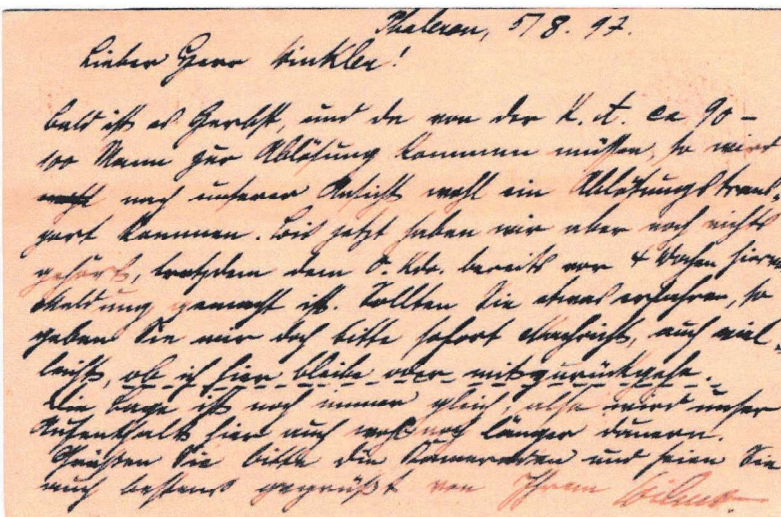 Phaleron, 5/8. 97.
Lieber Herr Winkler!
Bald ist es Herbst, und da von der K. A. ca 90 –
100 Mann zur Ablösung kommen müssen, so wird
nach unserer Ansicht wohl ein Ablösungstrans-
port kommen. Bis jetzt haben wir aber noch nichts
gehört, trotzdem dem O. Kdo. bereits vor 4 Wochen hierv.
Meldung gemacht ist. Sollten Sie etwas erfahren, so
geben Sie mir doch bitte sofort Nachricht, auch viel-
leicht, ob ich hier bleibe oder mitzurückgehe.
Die Lage ist noch immer gleich, also wird unser
Aufenthalt hier auch wohl noch länger dauern.
Grüßen Sie bitte die Kameraden und seien Sie
auch bestens gegrüßt von Ihrem